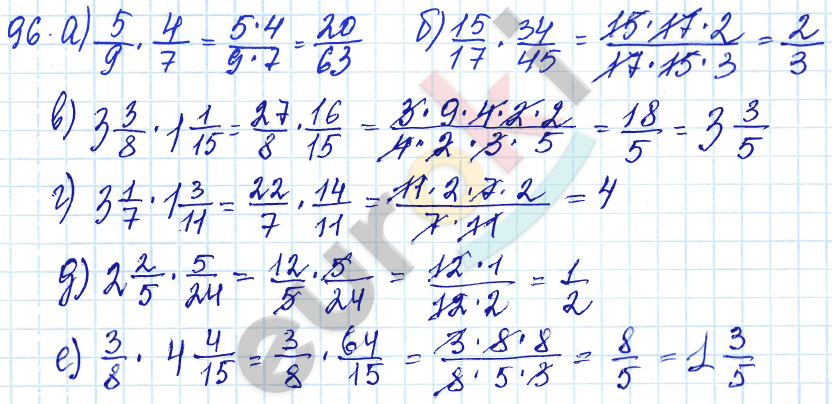 96. а) 5/9 · 4/7 = 5·4/9·7 = 20/63 б) 15/17 · 34/45 = 15·17·2/17·15·3 = 2/3
в) 3 3/8 · 1 1/15 = 27/8 · 16/15 = 3·9·4·2·2/4·2·3·5 = 18/5 = 3 3/5
г) 3 1/7 · 1 3/11 = 22/7 · 14/11 = 11·2·7·2/7·11 = 4
д) 2 2/5 · 5/24 = 12/5 · 5/24 = 12·1/12·2 = 1/2
е) 3/8 · 4 4/15 = 3/8 · 64/15 = 3·8·8/8·5·3 = 8/5 = 1 3/5
euroki